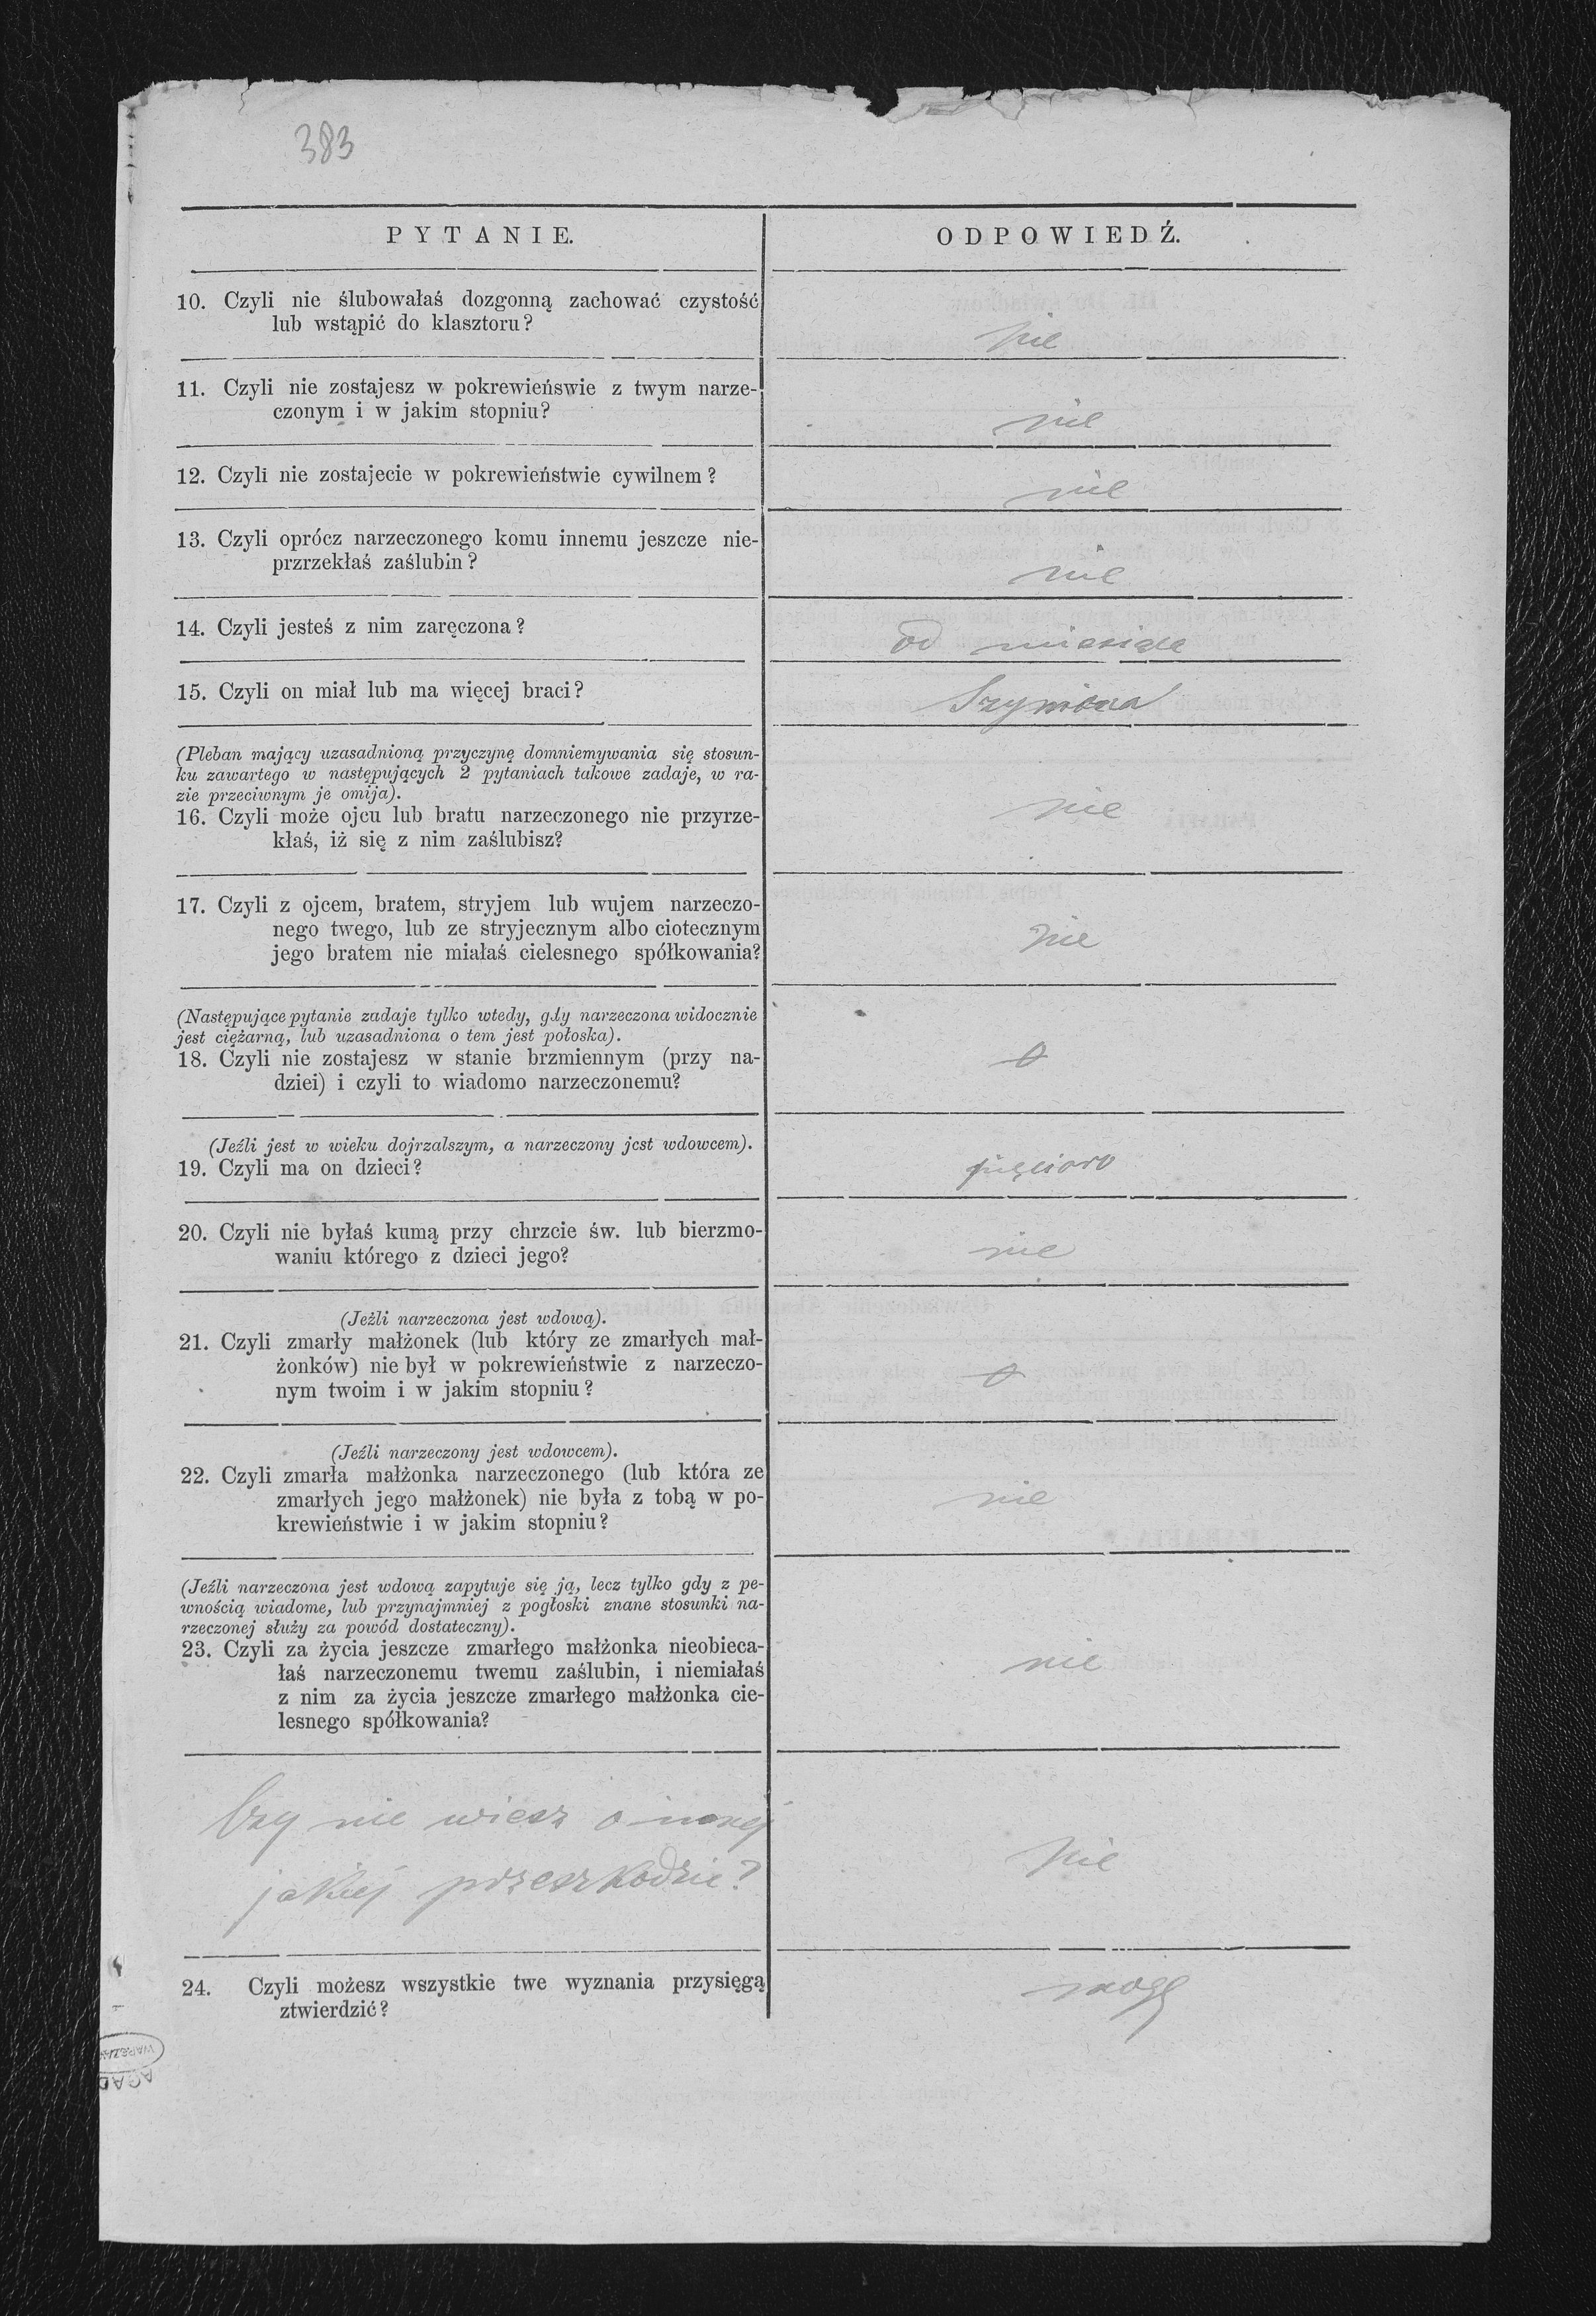 383
PYTANIE.
ODPOWIEDŹ.
10. Czyli nie ślubowałaś dozgonną zachować czystość
lub wstąpić do klasztoru?
nie
11. Czyli nie zostajesz w pokrewieńswie z twym narze-
czonym i w jakim stopniu?
nie
12. Czyli nie zostajecie w pokrewieństwie cywilnem?
nie
13. Czyli oprócz narzeczonego komu innemu jeszcze nie-
przrzekłaś zaślubin?
nie
14. Czyli jesteś z nim zaręczona?
od miesiąca
15. Czyli on miał lub ma więcej braci?
Szymona
(Pleban mający uzasadnioną przyczynę domniemywania się stosun-
ku zawartego w następujących 2 pytaniach takowe zadaje, w ra-
zie przeciwnym je omija).
16. Czyli może ojcu lub bratu narzeczonego nie przyrze-
kłaś, iż się z nim zaślubisz?
nie
17. Czyli z ojcem, bratem, stryjem lub wujem narzeczo-
nego twego, lub ze stryjecznym albo ciotecznym
jego bratem nie miałaś cielesnego spółkowania?
nie
(Następujące pytanie zadaje tylko wtedy, gdy narzeczona widocznie
jest ciężarną, lub uzasadniona o tem jest połoska).
18. Czyli nie zostajesz w stanie brzmiennym (przy na-
dziei) i czyli to wiadomo narzeczonemu?
0
(Jeźli jest w wieku dojrzalszym, a narzeczony jest wdowcem).
19. Czyli ma on dzieci?
pięcioro
20. Czyli nie byłaś kumą przy chrzcie św. lub bierzmo-
waniu którego z dzieci jego?
nie
(Jeźli narzeczona jest wdową).
21. Czyli zmarły małżonek (lub który ze zmarłych mał-
żonków) nie był w pokrewieństwie z narzeczo-
nym twoim i w jakim stopniu?
0
(Jeźli narzeczony jest wdowcem).
22. Czyli zmarła małżonka narzeczonego (lub która ze
zmarłych jego małżonek) nie była z tobą w po-
krewieństwie i w jakim stopniu?
nie
(Jeźli narzeczona jest wdową zapytuje się ją, lecz tylko gdy z pe-
wnością wiadome, lub przynajmniej z pogłoski znane stosunki na-
rzeczonej służy za powód dostateczny).
23. Czyli za życia jeszcze zmarłego małżonka nieobieca-
łaś narzeczonemu twemu zaślubin, i niemiałaś
z nim za życia jeszcze zmarłego małżonka cie-
lesnego spółkowania?
nie
Czy nie wiesz o innej
jakiej przeszkodzie?
nie
24. Czyli możesz wszystkie twe wyznania przysięgą
ztwierdzić?
mogę
WARSZAW
AGAD